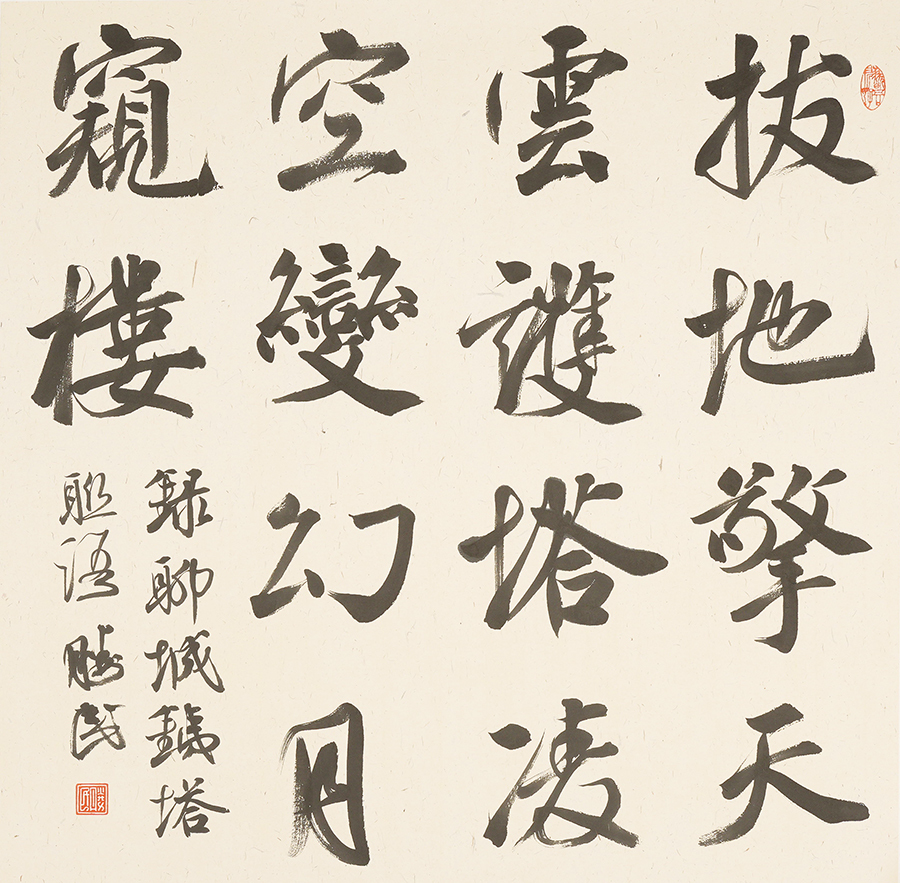 拔地擎天
雲護塔凌
空變幻月
窺樓
錄聊城鐵塔
聯語勝民